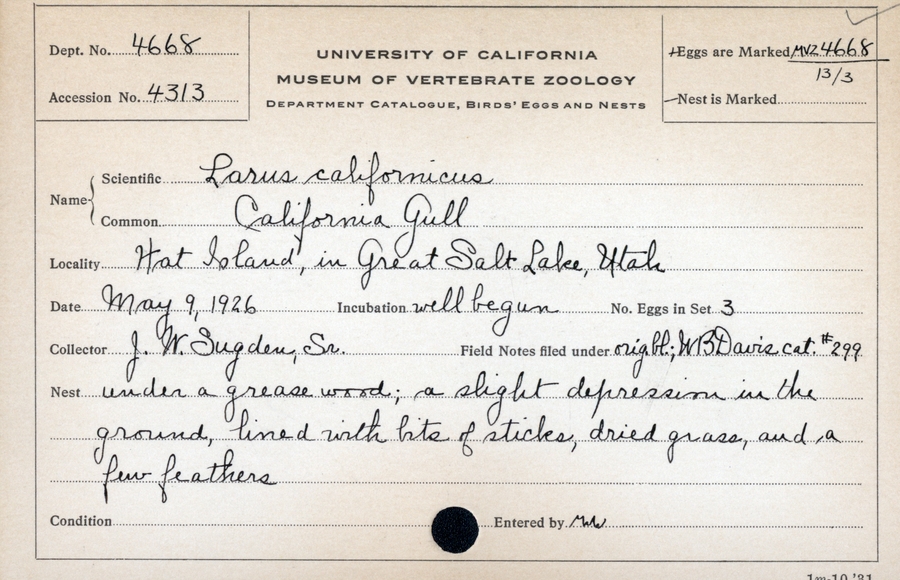 Dept. No. 4668
Accession No. 4313
UNIVERSITY OF CALIFORNIA
MUSEUM OF VERTEBRATE ZOOLOGY
DEPARTMENT CATALOGUE, BIRDS' EGGS AND NESTS
+Eggs are Marked MVZ 4668
13/3
—Nest is Marked
Name { Scientific Larus californicus
Common California Gull
Locality Hat Island, in Great Salt Lake, Utah
Date May 9, 1926 Incubation well begun No. Eggs in Set 3
Collector J. W. Sugden, Sr. Field Notes filed under orig bl.; WBDavis cat. #299
Nest under a grease wood; a slight depression in the
ground, lined with bits of sticks, dried grass, and a
few feathers
Condition Entered by
1m-10,'31